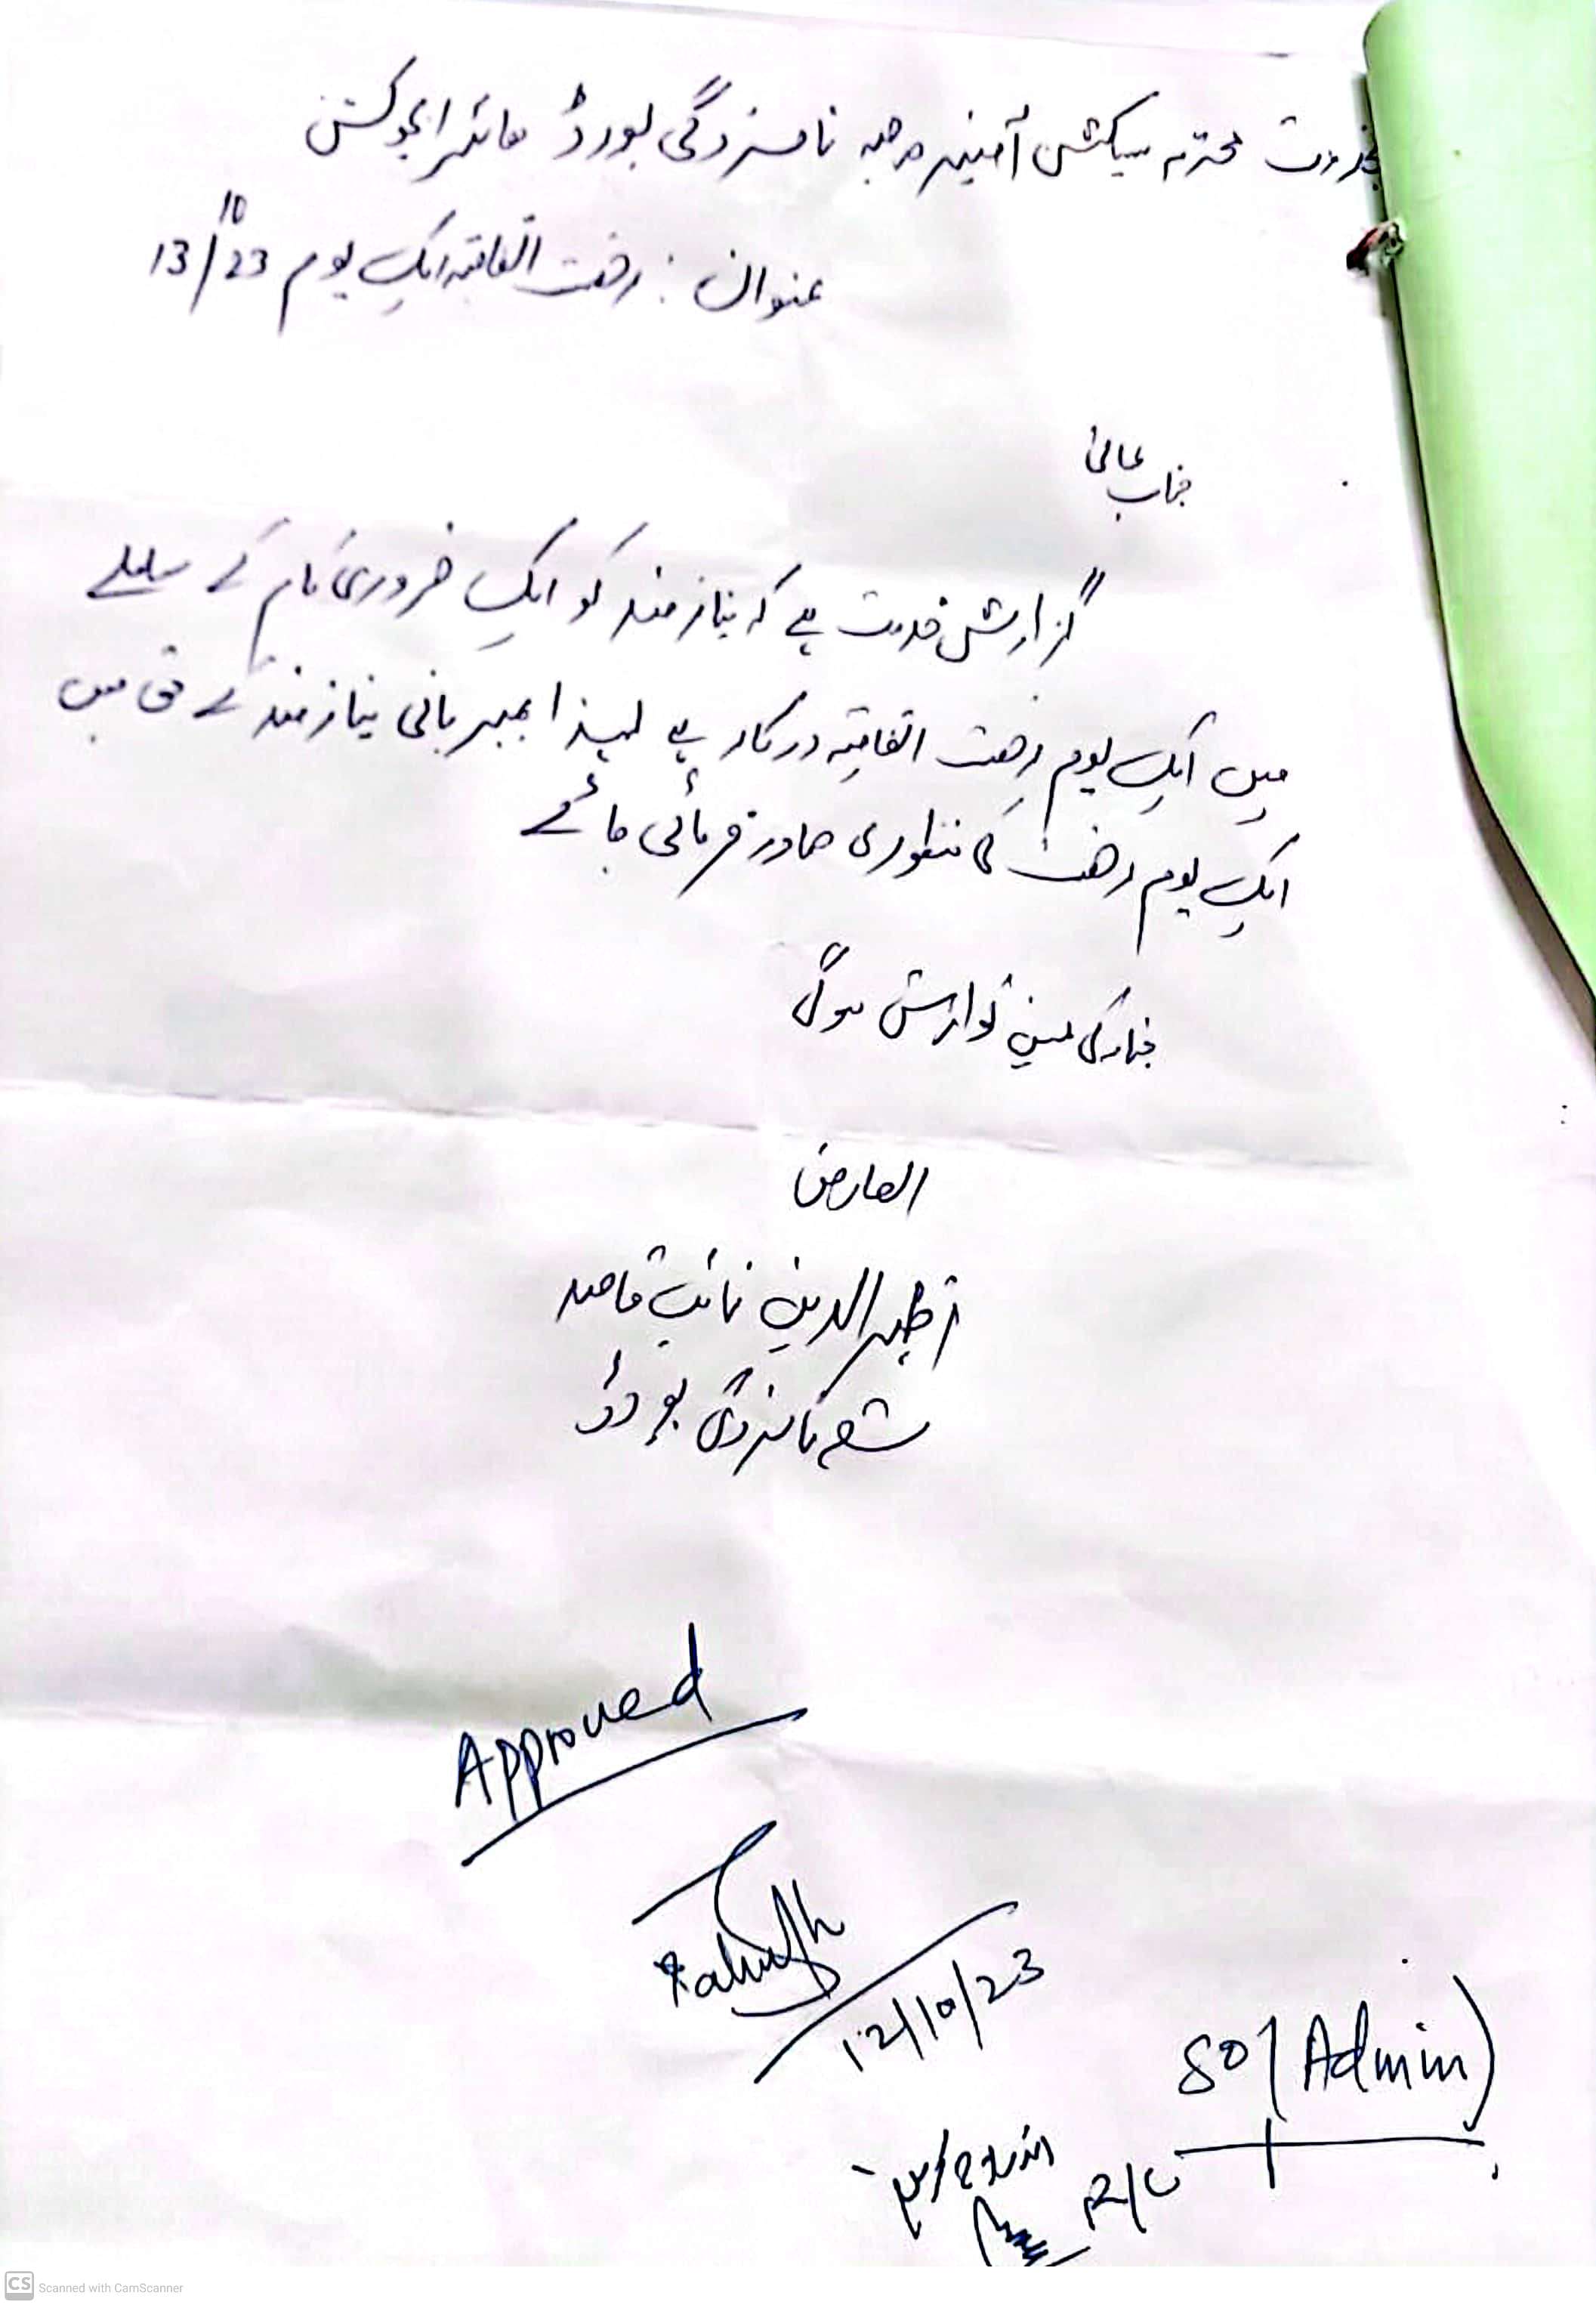 بخدمت محترم سیکشن آفیسر شعبہ نامزدگی بورڈ ہائر ایجوکیشن
عنوان : رخصت اتفاقیہ ایک یوم 13/10/23
جناب عالی
گزارش خدمت ہے کہ نیازمند کو ایک ضروری کام کے سلسلے
میں ایک یوم رخصت اتفاقیہ درکار ہے لہذا بمہربانی نیازمند کے حق میں
ایک یوم رخصت کی منظوری صادر فرمائی جائے
جناب کی عین نوازش ہوگی
العارض
ظہیرالدین نائب قاصد
شعبہ نامزدگی بورڈ
Approved
12/10/23
SO (Admin)
R/C
CS Scanned with CamScanner